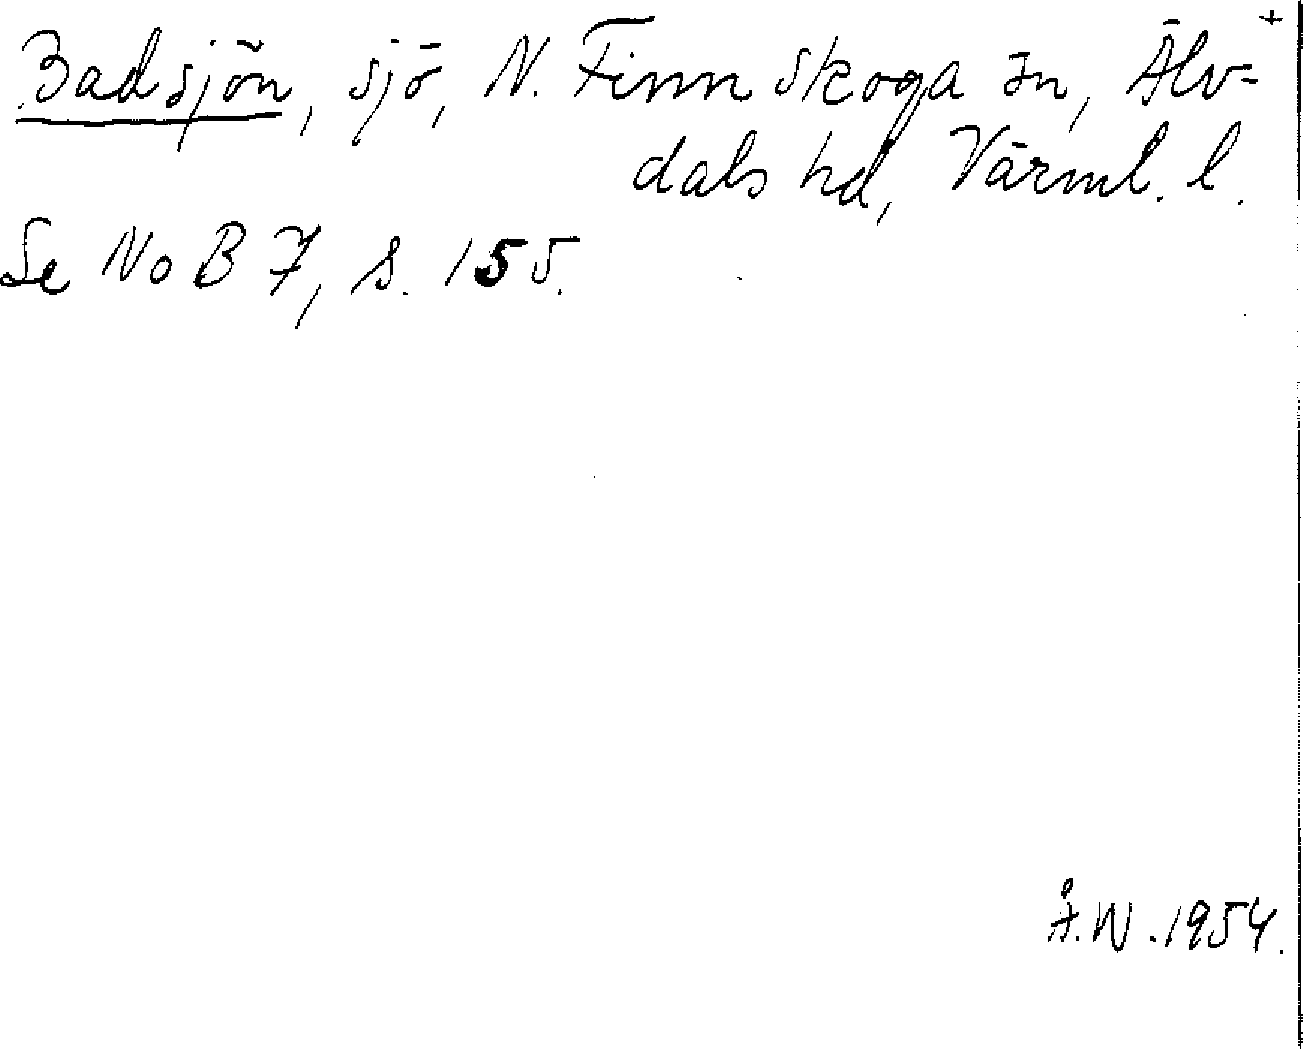 Badsjön, sjö, N. Finnskoga sn, Älv=
dals hd, Värml. l.
Se NoB 7, s. 155.
Å.W. 1954.